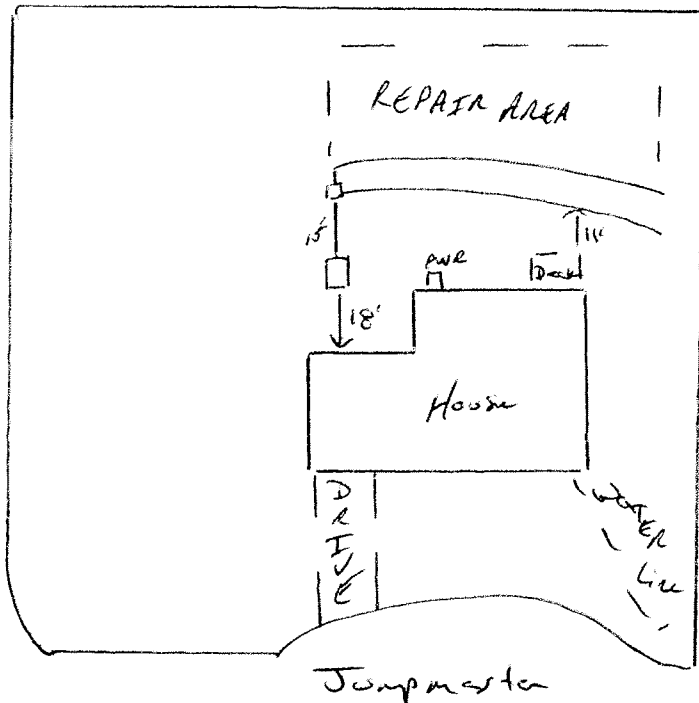 REPAIR AREA
15'
11'
PWR
Deck
18'
House
DRIVE
WATER
Line
Jumpmaster